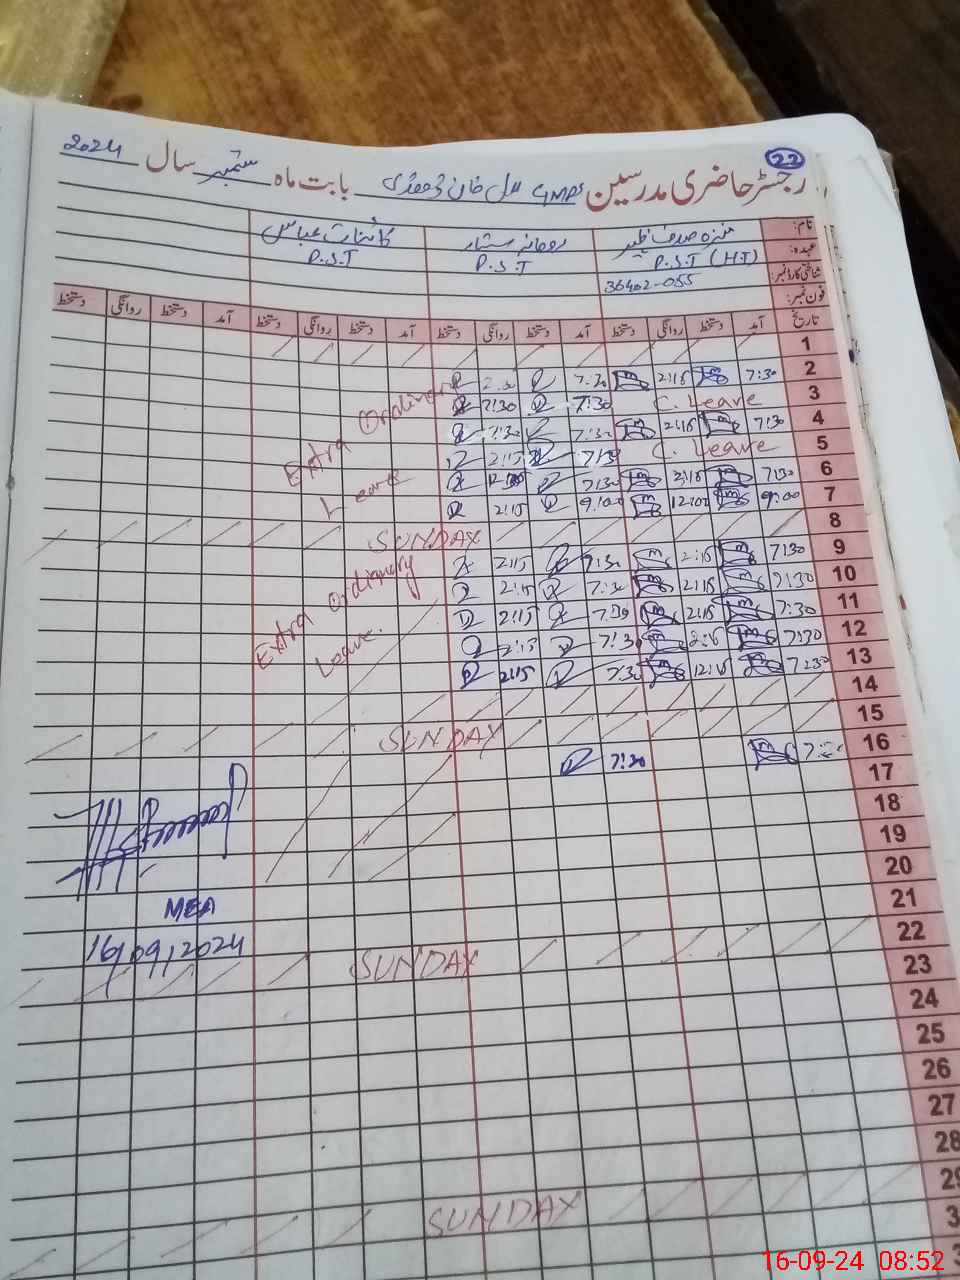 22
رجسٹر حاضری مدرسین GMPS لال خان بابت ماہ ستمبر سال 2024
نام: صدف کائنات عباس
عہدہ: P.S.T (H.T) P.S.T P.S.T
شناختی کارڈ نمبر: 36402-055
فون نمبر:
تاریخ آمد دستخط روانگی دستخط آمد دستخط روانگی دستخط آمد دستخط روانگی دستخط آمد دستخط روانگی دستخط
1
2 7:30 2:15 7:30 2:30
3 C. Leave 7:30 7:30
4 7:30 2:15 7:30 7:30
5 C. Leave 7:30 2:15
6 7:30 2:15 7:30
7 9:00 12:00 9:00 2:15
Extra Ordinary
Leave
8 SUNDAY
9 7:30 2:15 7:30 2:15
10 7:30 2:15 7:30 2:15
11 7:30 2:15 7:30 2:15
12 7:30 2:15 7:30 2:15
13 7:30 12:15 7:30 2:15
Extra Ordinary
Leave.
14
15 SUNDAY
16 7:30
17
18
19
20
21
MEA
16/09/2024
22 SUNDAY
23
24
25
26
27
28
29 SUNDAY
16-09-24 08:52